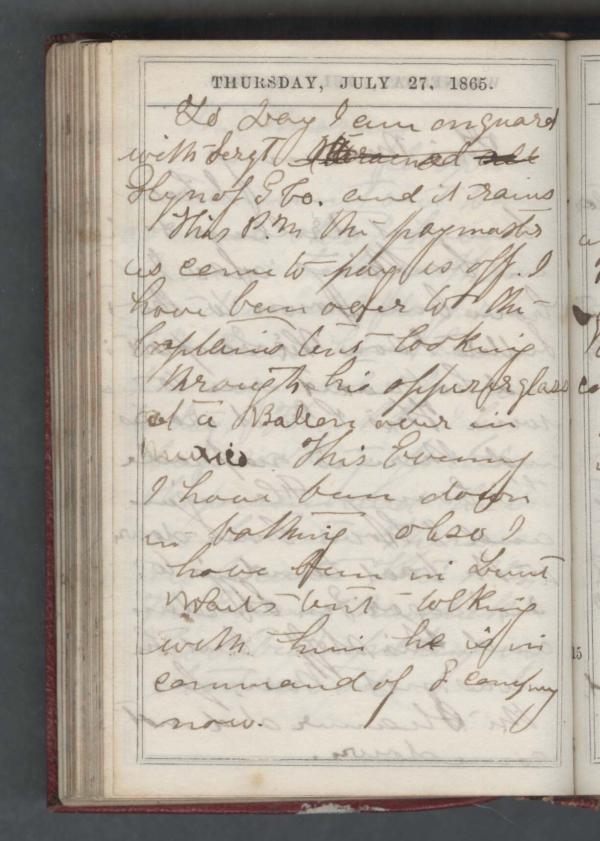 THURSDAY, JULY 27, 1865.
To Day I am on guard
with Sergt
Flyn of G Co. and it rains
This P.M the paymaster
is come to pay us off. I
have been over to the
Captains tent looking
through his opperrglass
at a Ballon over in
This Evening
I have been down
in bathing also I
have been in Lieut
tent tolking
with him he is in
command of E company
now.
15